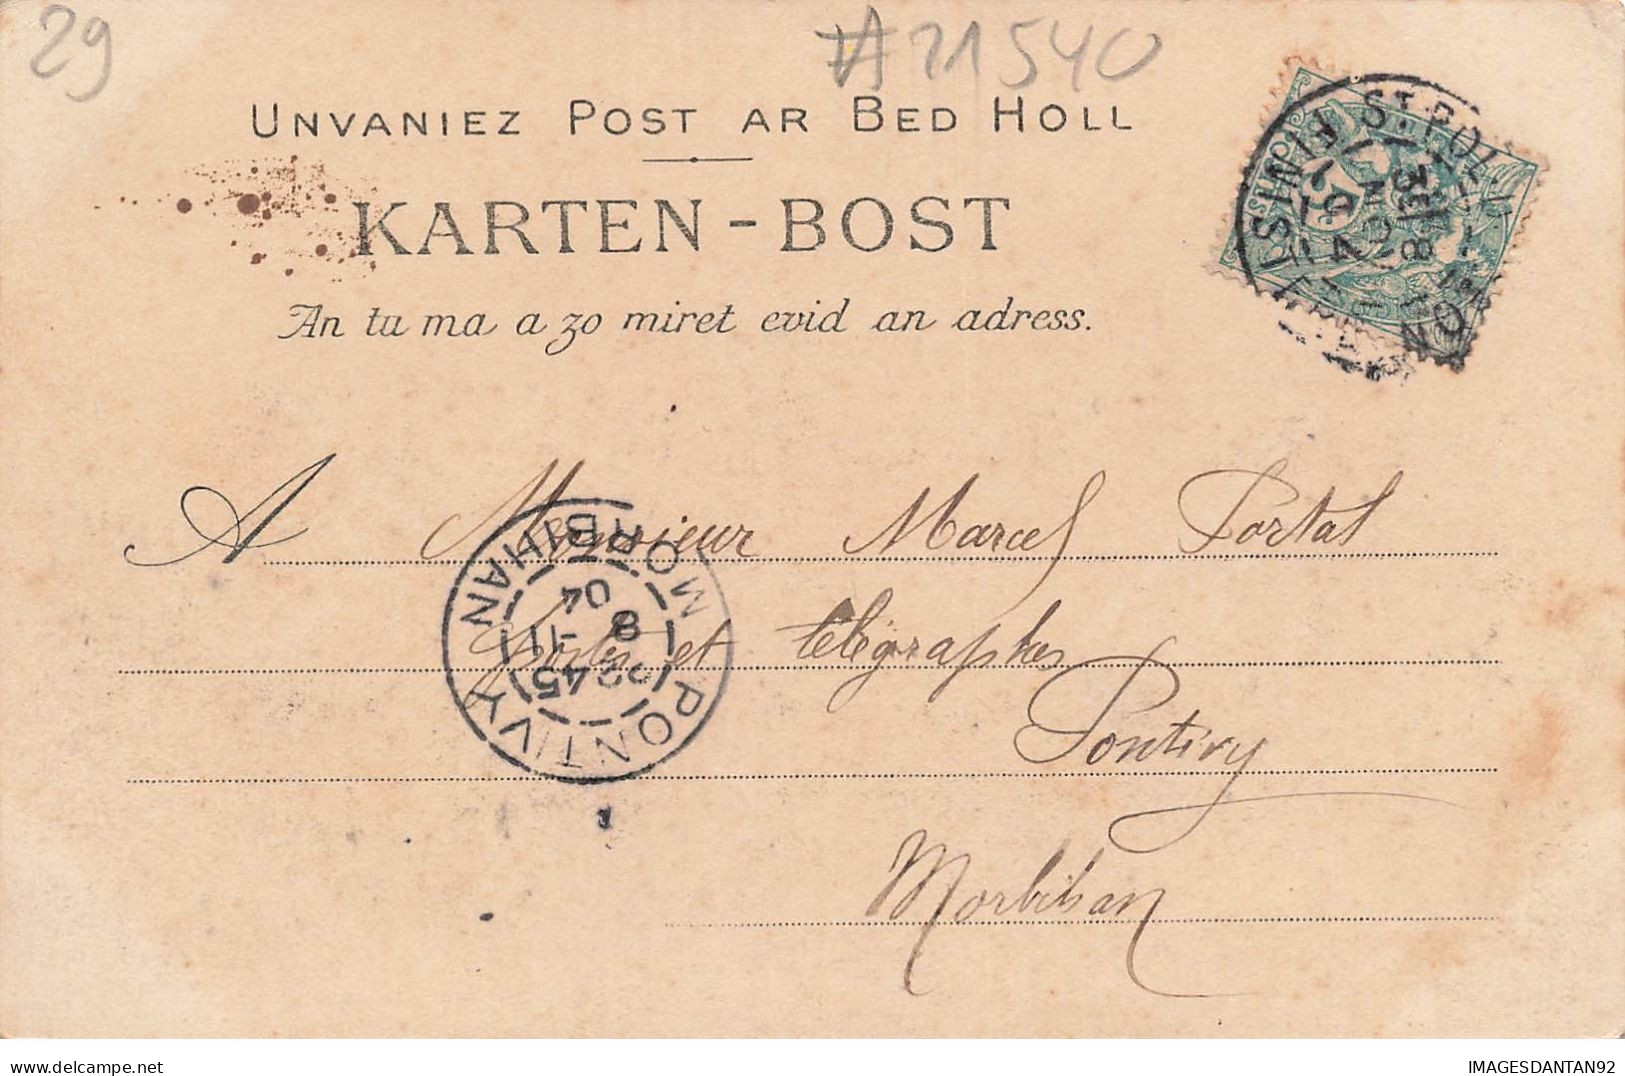 29
#21540
UNVANIEZ POST AR BED HOLL
KARTEN-BOST
An tu ma a zo miret evid an adress.
ST. POL
FINIST
A Monsieur Marcel Portal
Postes et télégraphes
Pontivy
Morbihan
PONTIVY
MORBIHAN
2245
8 -11
04
IMAGESDANTAN92